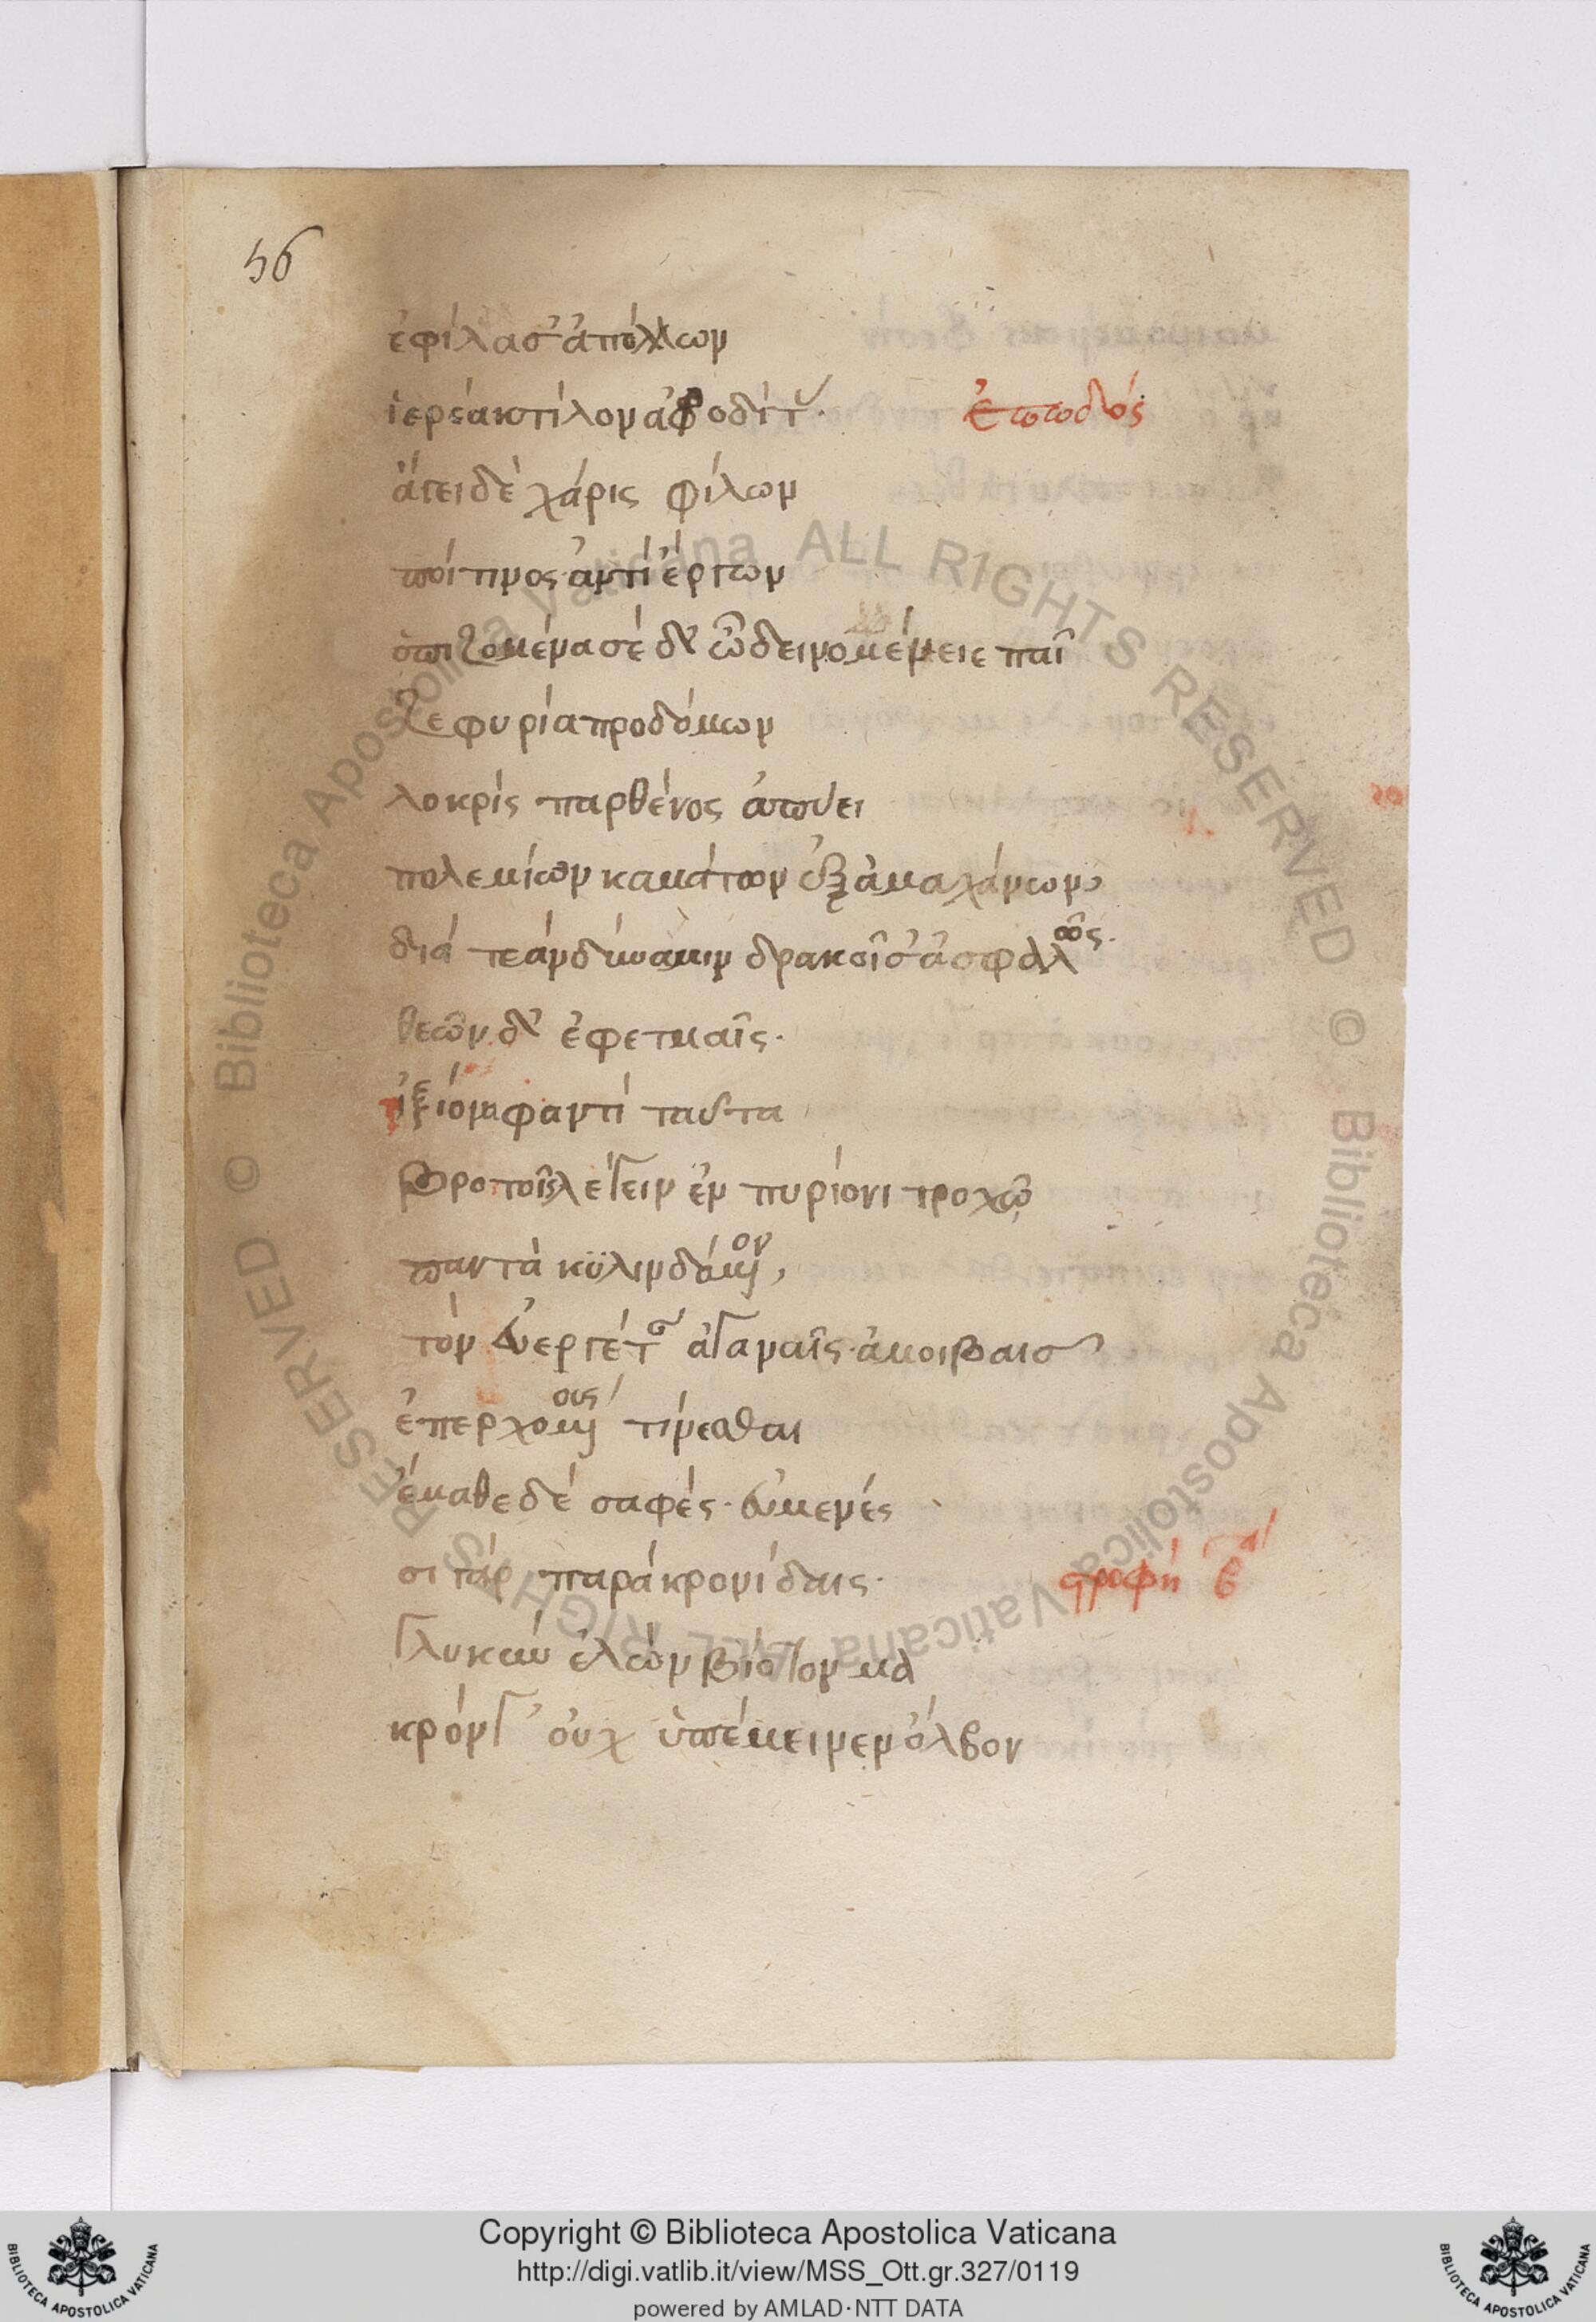 56
ἐφίλασ' ἀπόλλων
ἱερέα κτίλον ἀφροδίτας· ἐπωδός
ἄγει δὲ χάρις φίλων
ποίτιμος ἀντὶ ἔργων
ὀπιζομένα σὲ δ' ὦ δεινομένειε παῖ
ζεφυρία προδόμων
λοκρὶς παρθένος ἀπύει
πολεμίων καμάτων ἐξ ἀμαχάνων,
διὰ τεὰν δύναμιν δρακοῖσ' ἀσφαλῶς·
θεῶν δ' ἐφετμαῖς·
ἰξίονα φαντὶ ταῦτα
βροτοῖς λέγειν ἐν πτερόεντι τροχῷ
παντὰ κυλινδόμενον,
τὸν εὐεργέταν ἀγαναῖς ἀμοιβαῖς
ἐπερχομένους τίνεσθαι
ἔμαθε δὲ σαφές· εὐμενέσ
σι γὰρ παρὰ κρονίδαις· στροφὴ β
γλυκὺν ἑλὼν βίοτον μα
κρὸν γ' οὐχ ὑπέμεινεν ὄλβον
© Biblioteca Apostolica Vaticana ALL RIGHTS RESERVED © Biblioteca Apostolica Vaticana ALL RIGHTS RESERVED
Copyright © Biblioteca Apostolica Vaticana
http://digi.vatlib.it/view/MSS_Ott.gr.327/0119
powered by AMLAD·NTT DATA
BIBLIOTECA APOSTOLICA VATICANA
BIBLIOTECA APOSTOLICA VATICANA